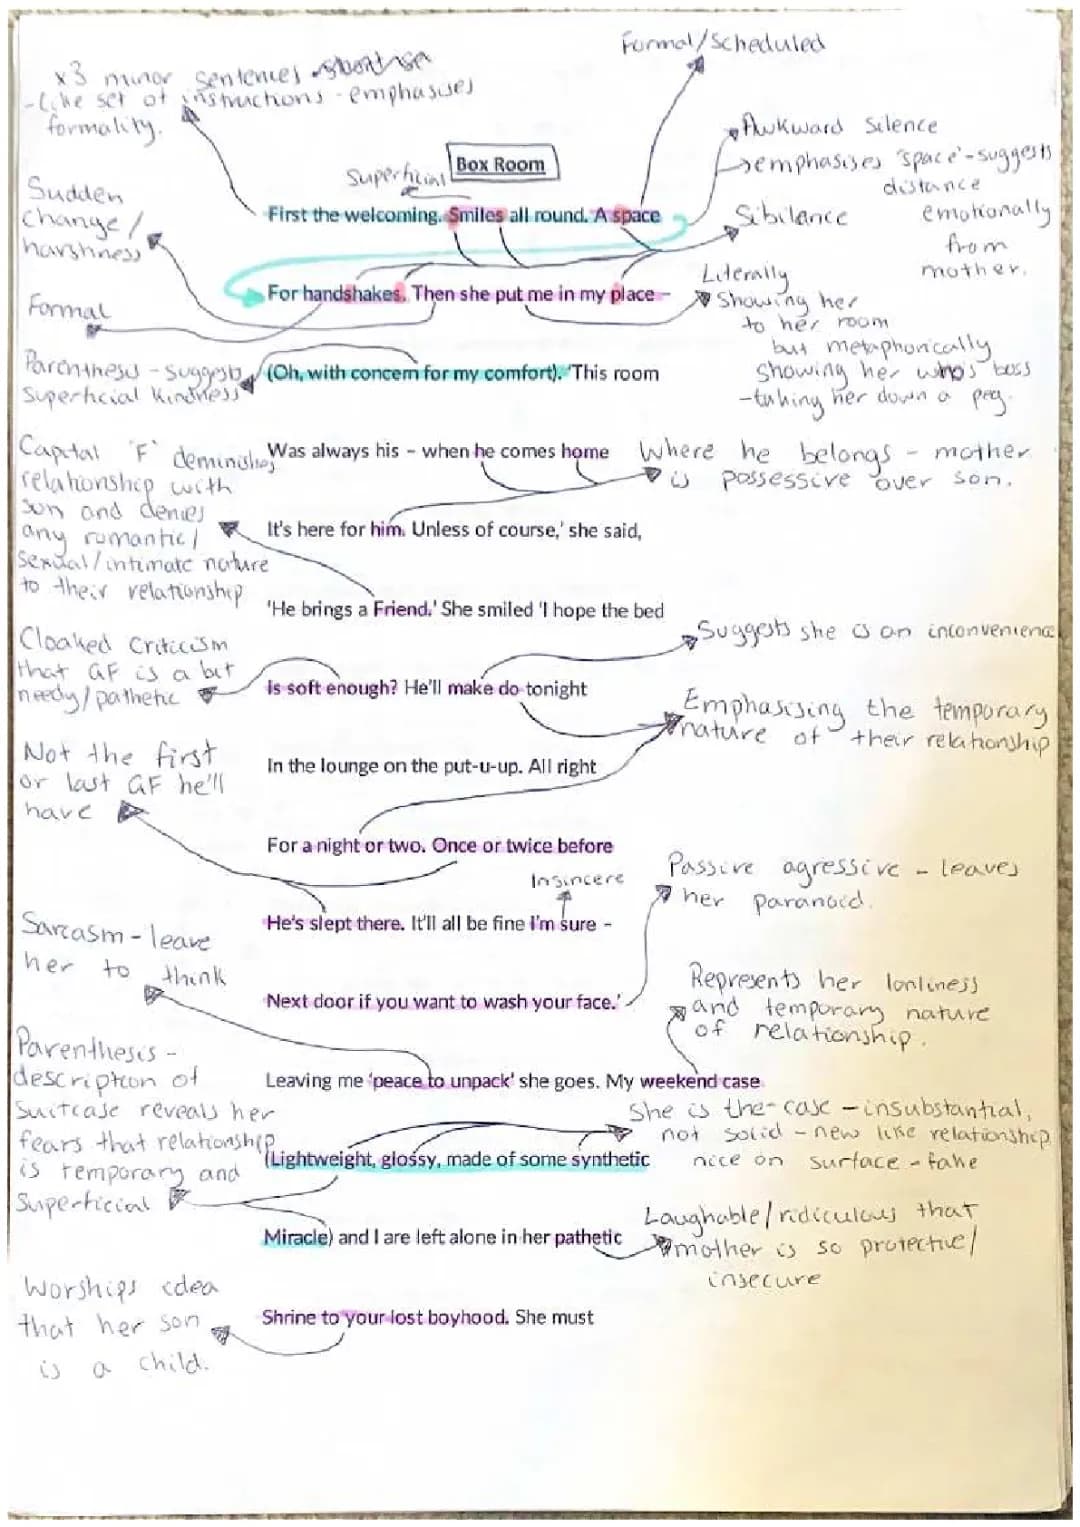 Formal/Scheduled
x3 minor sentences
-Like set of instructions - emphasises
formality.
Awkward Silence
emphasises 'space' - suggests
distance
emotionally
from
mother.
Box Room
Superficial
Sudden
change/
harshness
First the welcoming. Smiles all round. A space
Sibilance
For handshakes. Then she put me in my place –
Literally
Showing her
to her room
but metaphorically
showing her who's boss
-taking her down a peg.
Formal
Parenthesis - suggests
superficial kindness
(Oh, with concern for my comfort). 'This room
Was always his – when he comes home
Where he belongs - mother
is possessive over son.
Capital 'F' deminishes
relationship with
son and denies
any romantic/
sexual/intimate nature
to their relationship
It's here for him. Unless of course,' she said,
'He brings a Friend.' She smiled 'I hope the bed
Suggests she is an inconvenience
Cloaked Criticism
that GF is a bit
needy/pathetic
Is soft enough? He'll make do tonight
Emphasising the temporary
nature of their relationship
In the lounge on the put-u-up. All right
Not the first
or last GF he'll
have
For a night or two. Once or twice before
Insincere
He's slept there. It'll all be fine I'm sure –
Passive agressive - leaves
her paranoid.
Sarcasm - leave
her to think
Next door if you want to wash your face.'
Represents her lonliness
and temporary nature
of relationship.
Leaving me 'peace to unpack' she goes. My weekend case
Parenthesis -
description of
suitcase reveals her
fears that relationship
is temporary and
superficial
She is the case - insubstantial,
not solid - new like relationship
nice on surface - fake
(Lightweight, glossy, made of some synthetic
Miracle) and I are left alone in her pathetic
Laughable/ridiculous that
mother is so protective/
insecure
Shrine to your lost boyhood. She must
Worships idea
that her son
is a child.